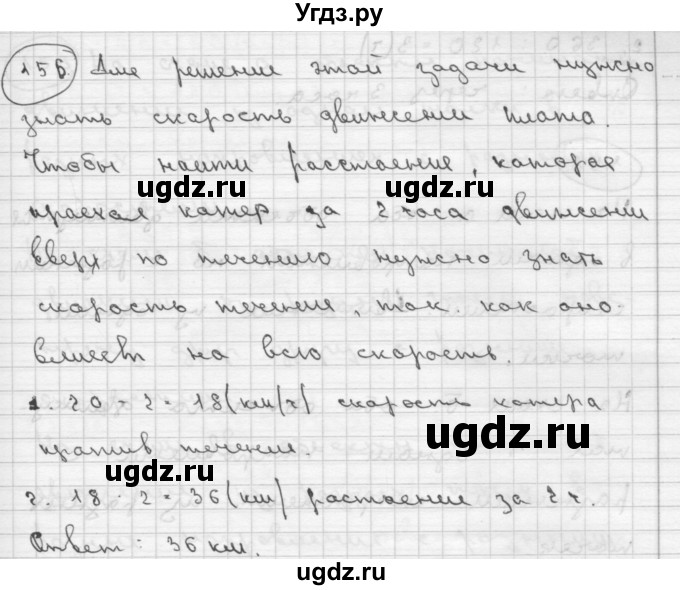 Угдз.ру
156. Для решение этой задачи нужно
знать скорость движении плота.
Чтобы найти расстаение, которае
праехал катер за 2 часа движении
вверх по течению нужно знать
скорасть течения, так как оно
влиеет на всю скорасть.
1. 20 - 2 = 18 (км/ч) скорасть катера
против течения.
2. 18 · 2 = 36 (км) растоении за 2 ч.
Ответ: 36 км.
ugdz.ru
ugdz.ru
ugdz.ru
ugdz.ru
ugdz.ru